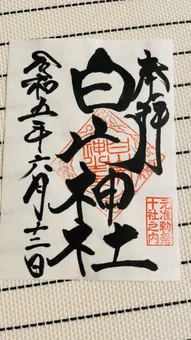 奉拝
白山神社
元准勅祭
十社之内
令和五年六月十二日